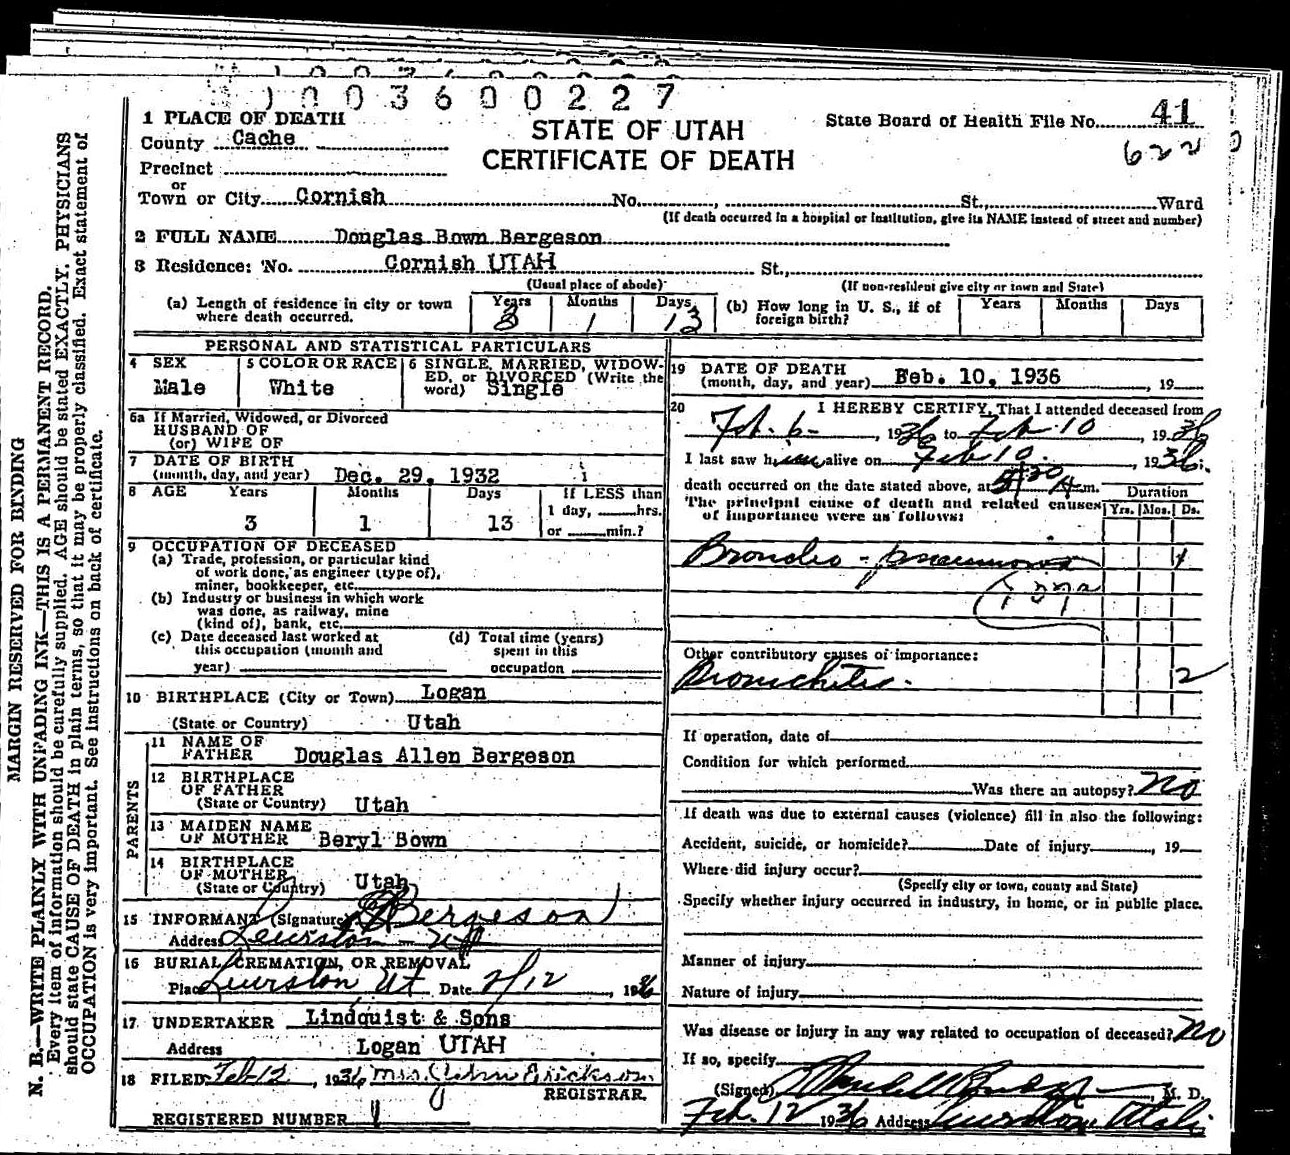 1003600227
1 PLACE OF DEATH
STATE OF UTAH
CERTIFICATE OF DEATH
State Board of Health File No. 41
622
County Cache
Precinct
or
Town or City Cornish No. , St., Ward
(If death occurred in a hospital or institution, give its NAME instead of street and number)
2 FULL NAME Douglas Bown Bergeson
3 Residence: No. Cornish UTAH St.,
(Usual place of abode) (If non-resident give city or town and State)
(a) Length of residence in city or town where death occurred. Years 3 Months 1 Days 13 (b) How long in U. S., if of foreign birth? Years Months Days
PERSONAL AND STATISTICAL PARTICULARS
4 SEX
Male
5 COLOR OR RACE
White
6 SINGLE, MARRIED, WIDOW-
ED, or DIVORCED (Write the
word) Single
6a If Married, Widowed, or Divorced
HUSBAND OF
(or) WIFE OF
7 DATE OF BIRTH
(month, day, and year) Dec. 29, 1932
8 AGE Years Months Days If LESS than
1 day, hrs.
3 1 13 or min.?
9 OCCUPATION OF DECEASED
(a) Trade, profession, or particular kind
of work done, as engineer (type of),
miner, bookkeeper, etc.
(b) Industry or business in which work
was done, as railway, mine
(kind of), bank, etc.
(c) Date deceased last worked at
this occupation (month and
year)
(d) Total time (years)
spent in this
occupation
10 BIRTHPLACE (City or Town) Logan
(State or Country) Utah
PARENTS
11 NAME OF
FATHER Douglas Allen Bergeson
12 BIRTHPLACE
OF FATHER
(State or Country) Utah
13 MAIDEN NAME
OF MOTHER Beryl Bown
14 BIRTHPLACE
OF MOTHER
(State or Country) Utah
15 INFORMANT (Signature) Bergeson
Address Lewiston - Ut
16 BURIAL, CREMATION, OR REMOVAL
Place Lewiston Ut Date 2/12, 1936
17 UNDERTAKER Lindquist & Sons
Address Logan UTAH
18 FILED Feb 12, 1936 Mrs. John Erickson
REGISTRAR.
REGISTERED NUMBER 1
19 DATE OF DEATH
(month, day, and year) Feb. 10, 1936, 19
20 I HEREBY CERTIFY, That I attended deceased from
Feb. 6-, 1936 to Feb 10, 1936
I last saw him alive on Feb 10, 1936.
death occurred on the date stated above, at 5:30 A.m.
The principal cause of death and related causes
of importance were as follows:
Duration
Yrs. Mos. Ds.
Broncho-pneumonia
Other contributory causes of importance:
Bronchitis. 2
If operation, date of
Condition for which performed
Was there an autopsy? No
If death was due to external causes (violence) fill in also the following:
Accident, suicide, or homicide? Date of injury , 19
Where did injury occur?
(Specify city or town, county and State)
Specify whether injury occurred in industry, in home, or in public place.
Manner of injury
Nature of injury
Was disease or injury in any way related to occupation of deceased? No
If so, specify
(Signed) M. D.
Feb. 12 1936 Address Lewiston Utah
MARGIN RESERVED FOR BINDING
N. B.—WRITE PLAINLY WITH UNFADING INK—THIS IS A PERMANENT RECORD.
Every item of information should be carefully supplied. AGE should be stated EXACTLY. PHYSICIANS
should state CAUSE OF DEATH in plain terms, so that it may be properly classified. Exact statement of
OCCUPATION is very important. See instructions on back of certificate.